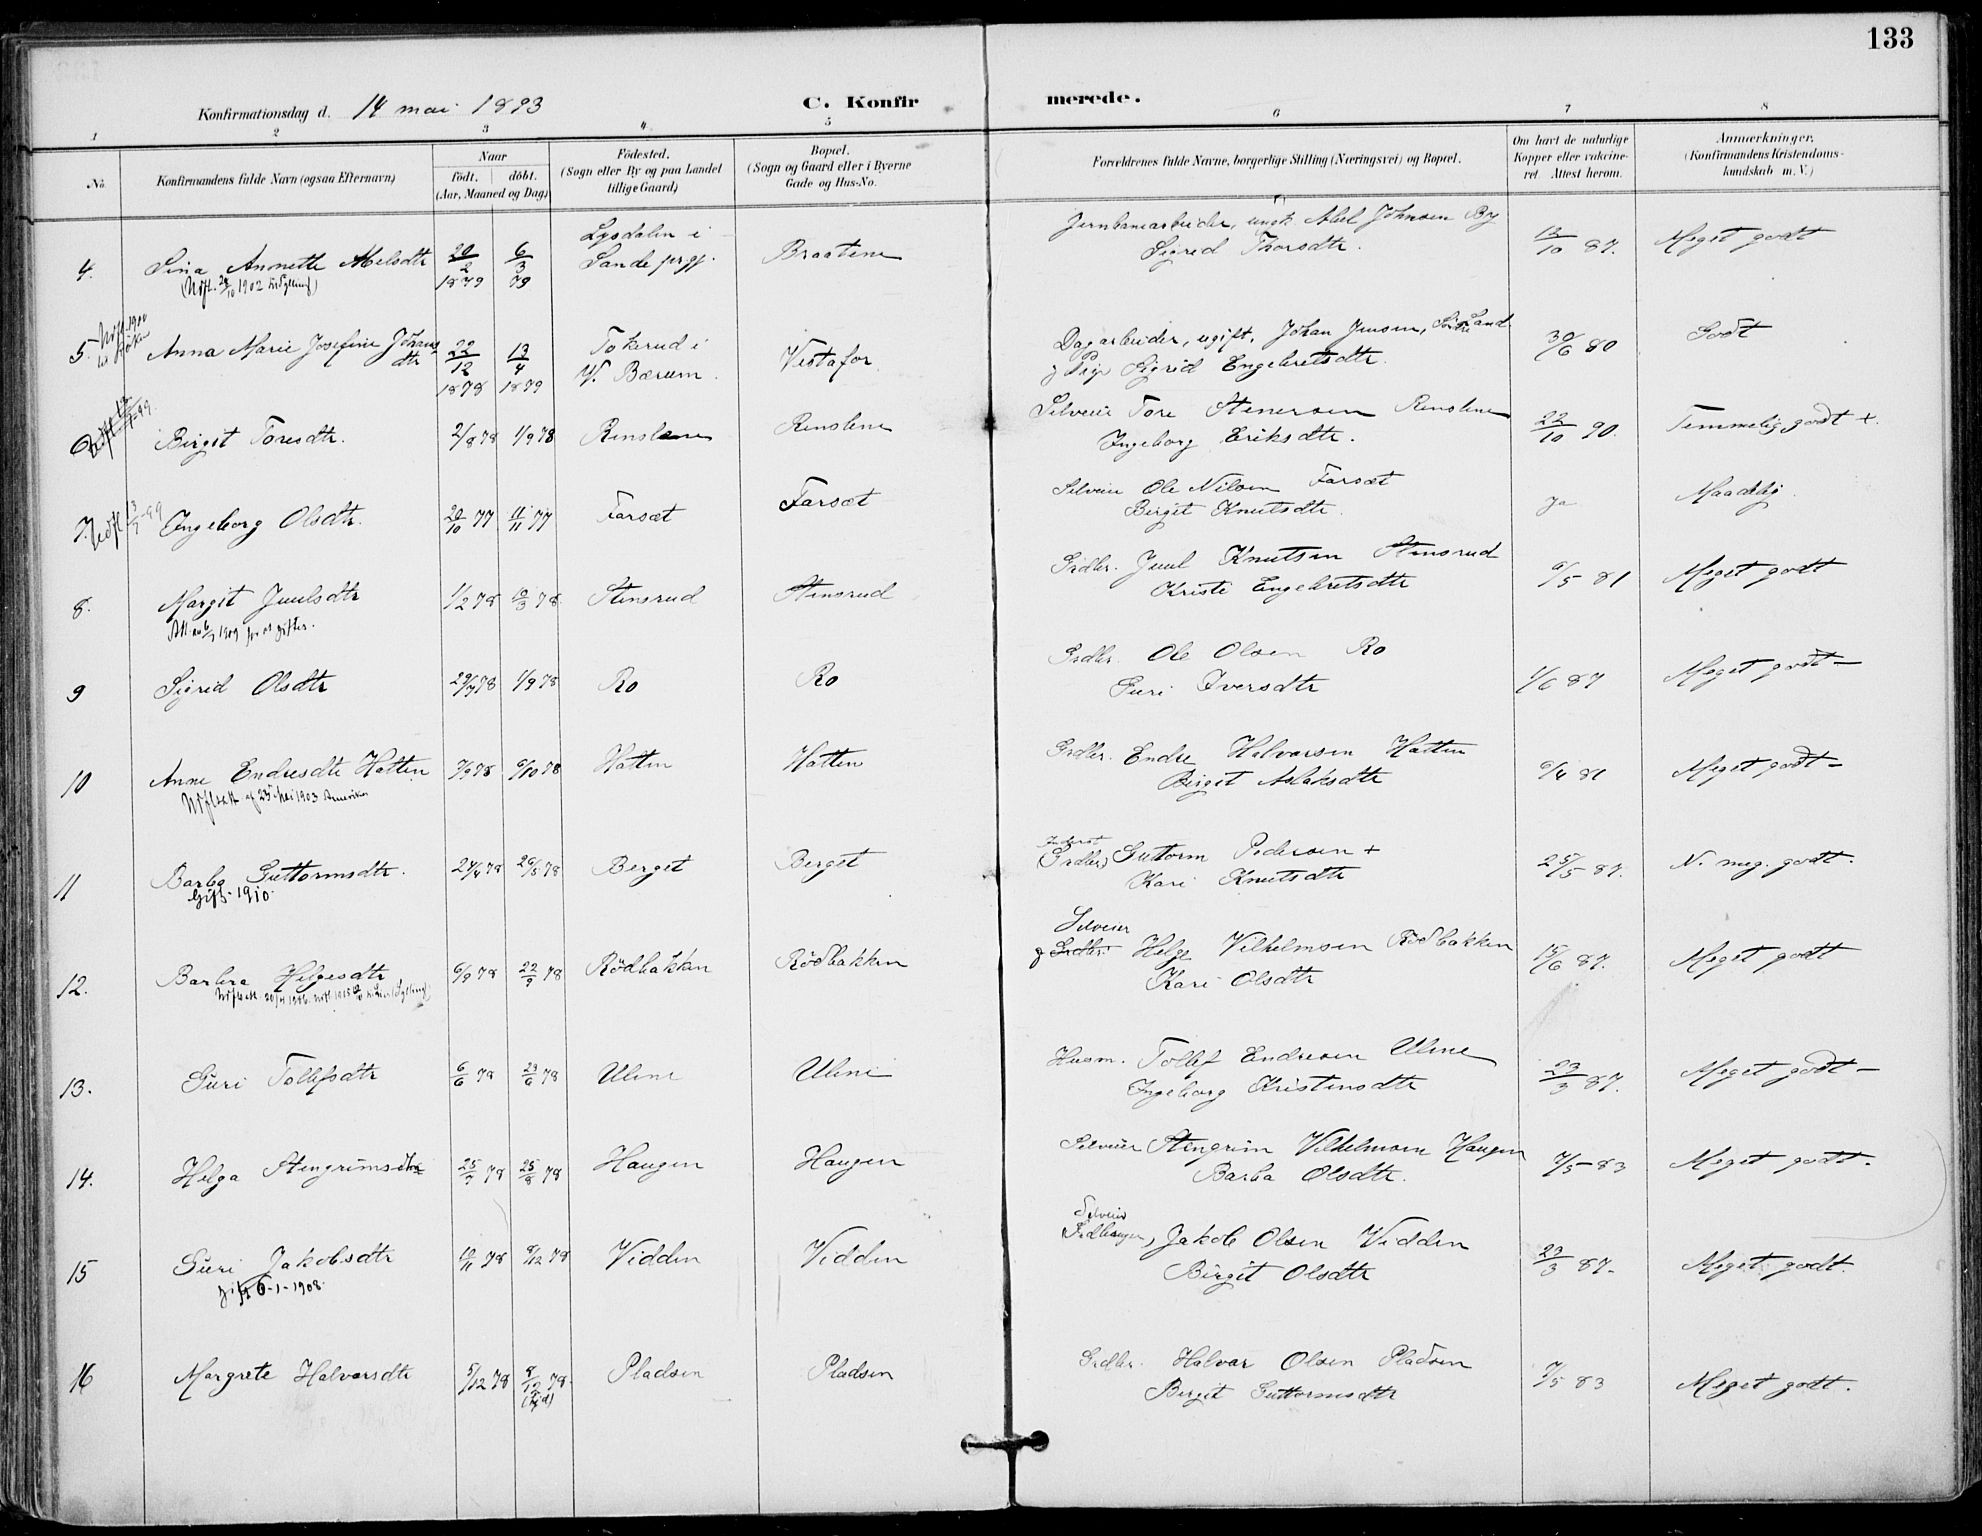 133
Konfirmationsdag d. 14 mai 1893
C. Konfirmerede.
1 2 3 4 5 6 7 8
No. Konfirmandens fulde Navn (ogsaa Efternavn) Naar födt. döbt. (Aar, Maaned og Dag) Födested. (Sogn eller By og paa Landet tillige Gaard) Bopæl. (Sogn og Gaard eller i Byerne Gade og Hus-No. Forældrenes fulde Navne, borgerlige Stilling (Næringsvei) og Bopæl. Om havt de naturlige Kopper eller vakcineret. Attest herom. Anmærkninger. (Konfirmandens Kristendomskundskab m. V.)
4. Sina Annette 20/2 1879 6/3 79 Lysdalen i Sande prgj. Braatene Jernbanearbeider, ungk. Abel Johnsen By
Sigrid Thorsdtr. 13/10 87. Meget godt
5. Anna Marie Josefine Johansdtr 22/12 1878 13/4 1879 Tokerud i V. Bærum. Vestafor Dagarbeider, ugift, Johan Jensen,
Pige Sigrid Engebretsdtr. 30/6 80 Godt
6 Birgit Toresdtr. 2/8 78 1/9 78 Renslene Renslene Selveier Tore Stenersen Renslene
Ingeborg Eriksdtr. 22/10 90. Temmelig godt +.
7. Ingeborg Olsdtr. 20/10 77 11/11 77 Farsæt Farsæt Selveier Ole Nilsen Farsæt
Birgit Knutsdtr. Ja Maadelig.
8. Margit Juulsdtr 1/2 78 10/3 78. Stensrud Stensrud Grdbr. Juul Knutsen Stensrud
Kristi Engebretsdtr 6/5 81 Meget godt
9 Sigrid Olsdtr 29/7 78 1/9 78 Ro Ro Grdbr. Ole Olsen Ro
Guri Iversdtr 1/6 87 Meget godt –
10 Anne Endresdtr Hatten 7/9 78 6/10 78 Hatten Hatten Grdbr. Endre Halvorsen Hatten
Birgit Aslaksdtr 6/4 81 Meget godt –
af 25 Mai 1903 Amerika
11 Barbo Guttormsdtr. 24/4 78 26/5 78 Berget Berget (Grdbr) Guttorm Pedersen +
Kari Knutsdtr 25/5 87. N. meg. godt.
Gift 1910.
12. Barbra Helgesdtr 6/9 78 22/9 78 Rödbakken Rödbakken Selveier
Grdbr. Helge Vilhelmsen Rödbakken
Kari Olsdtr 15/6 87. Meget godt
13. Guri Tollefsdtr 6/6 78 23/6 78 Uleni Uleni Husm. Tollef Endresen Uleni
Ingeborg Kristensdtr 23/3 87. Meget godt –
14. Helga Stengrimsdtr 25/7 78 25/8 78 Haugen Haugen Selveier Stengrim Vilhelmsen Haugen
Barbo Olsdtr. 7/5 83 Meget godt.
15 Guri Jakobsdtr 10/11 78 8/12 78 Vidden Vidden Selveier
Grdbruger, Jakob Olsen Vidden
Birgit Olsdtr 29/3 87. Meget godt.
gift 6-1-1908.
16 Margrete Halvorsdtr 5/12 78 8/12 78. Pladsen Pladsen Grdbr. Halvor Olsen Pladsen
Birgit Guttormsdtr 7/5 83 Meget godt.